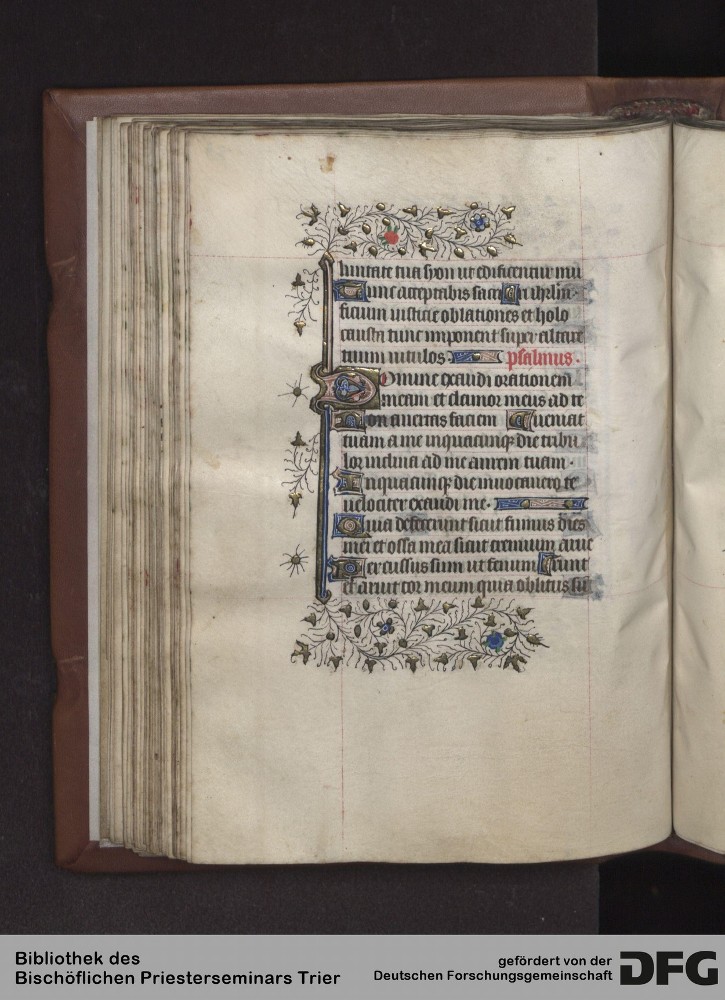 luntate tua syon ut edificentur mu
Tunc acceptabis sacri ri ihrlm.
ficium iusticie oblationes et holo
causta tunc imponent super altare
tuum uitulos. psalmus.
Domine exaudi orationem
meam et clamor meus ad te
Non auertas faciem ueniat
tuam a me inquacumq die tribu
lor inclina ad me aurem tuam.
In quacumq die inuocauero te
uelociter exaudi me.
Quia defecerunt sicut fumus dies
mei et ossa mea sicut cremium arue
Percussus sum ut fenum runt
et aruit cor meum quia oblitus su
Bibliothek des
Bischöflichen Priesterseminars Trier
gefördert von der
Deutschen Forschungsgemeinschaft DFG